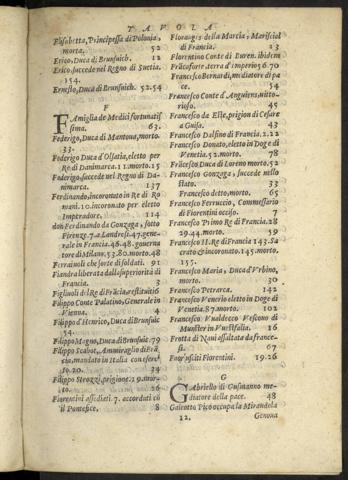 TAVOLA
Elisabetta, Principessa di Polonia,
morta. 52
Erico, Duca di Brunsuich. 12
Erico succede nel Regno di Suetia.
154.
Ernesto, Duca di Brunsuich. 52.54
F
FAmiglia de Medici sfortunatis
sima. 63.
Federigo, Duca di Mantoua, morto.
33.
Federigo, Duca d'Olsatia, eletto per
Re di Danimarca. 11. morto. 15
Federigo, succede nel Regno di Da-
nimarca. 137
Ferdinando, incoronato in Re di Ro
mani. 10. incoronato per eletto
Imperadore. 114
don Ferrando da Gonzaga, sotto
Firenze. 7. a Landresi. 47. gene-
rale in Francia. 46. 48. gouerna
tore di Milano. 53. 80. morto. 48
Ferraiuoli che sorte di soldati. 91
Fiandra liberata dalla superiorità di
Francia. 3
Figliuoli del Re di Frãcia, restituiti 6
Filippo Conte Palatino, Generale in
Vienna. 4
Filippo d'Henrico, Duca di Brunsuic
54.
Filippo Magno, Duca di Brunsuic. 79
Filippo Scabot, Ammiraglio di Frã-
cia, mandato in Italia con eserci-
to. 20. 34
Filippo Strozzi, prigione. 29. mor-
to. 26
Fiorentini assediati 7. accordati cõ
il Pontefice. 8
Floranges della Marcia, Mariscial
di Francia. 23
Florentino Conte di Buren. ibidem
Fricasorte, terra d'imperio 56. 70
Francesco Bernardi, mediatore di pa
ce. 54
Francesco Conte d'Anguien, vitto-
rioso. 45
Francesco da Este, prigion di Cesare
a Guisa. 43
Francesco Delfino di Francia. 2. 22
Francesco Donato, eletto in Doge di
Venetia. 52. morto. 78
Frãcesco Duca di Loreno morto. 52
Francesco Gonzaga, succede nello
stato. 33
Francesco detto, morto. 65
Francesco Ferruccio, Commessario
di Fiorentini occiso. 7
Francesco Primo Re di Francia. 28
29. 44. morto. 59
Francesco II. Re di Francia 143. Sa
crato & incoronato. 145. morto.
155.
Francesco Maria, Duca d'Vrbino,
morto. 30
Francesco Petrarca. 142
Francesco Venerio eletto in Doge di
Venetia. 87. morto. 102
Francesco Vualdecco Vescouo di
Munster in Vuestfalia. 16
Frotta di Naui assaltata da france-
si. 67
Fuor'usciti Fiorentini. 19. 26
G
GAbriello di Gusmanno me-
diatore della pace. 48
Galeotto Pico occupa la Mirandola
12. Genoua